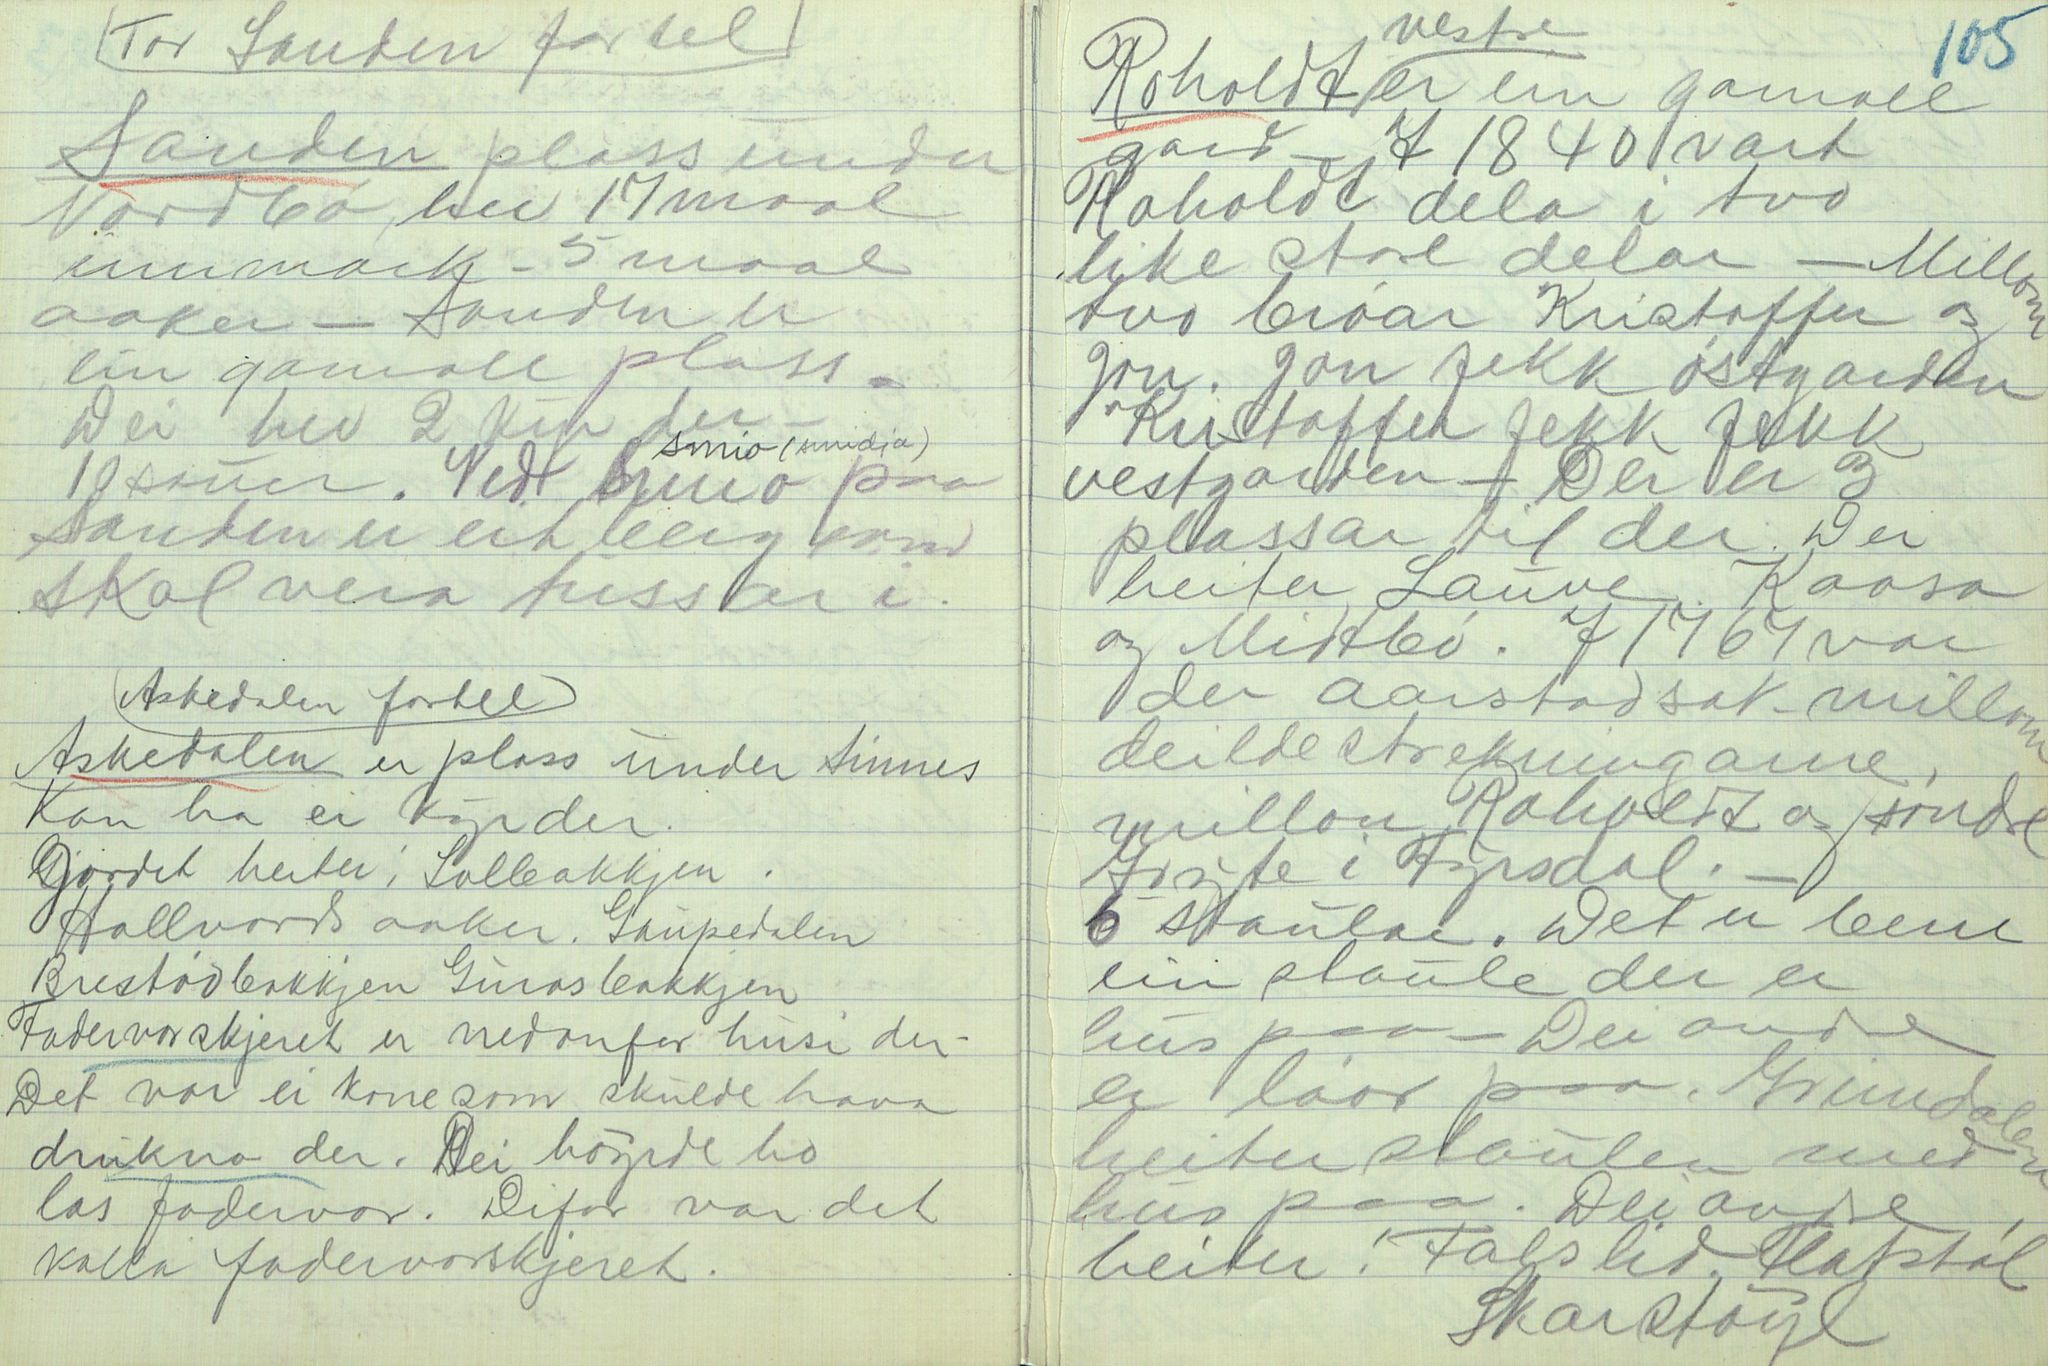 Tor Sanden fortel
Sanden plass under
Nordbö, hev 17 maal
innmark - 5 maal
aaker - Sanden er
ein gamall plass -
Dei hev 2 kyr der -
10 sauer. Vedt smio paa
smio (smidja)
Sanden er eit berg som
skal vera tussar i.
Askedalen fortel
Askedalen er plass under Sinnes
Kan ha ei kyr der.
Gjordet heiter; Solbakkjen.
Hallvardsaaker. Gaupedalen
Brestödbakkjen Gurosbakkjen
Fadervorskjeret er nedanfor husi der -
Det var ei kone som skulde hava
drukna der. Dei höyrde ho
las fadervor. Difor var det
kalla fadervorskjeret.
105
vestre
Roholdt er ein gamall
gard - I 1840 vart
Roholdt dela i tvo
like store delar - Millom
tvo bröar Kristoffer og
Jon. Jon fekk östgarden
Kristoffer fekk fekk
vestgarden - Der er 3
plassar til der. Der
heiter Lauve, Kaasa
og Midtbö. I 1767 var
der aarstadsak millom
deildestrekningarne,
millom Roholdt og söndre
i Fyrsdal. -
6 staular. Det er bere
ein staule der er
hus paa - Dei andre
er löor paa. Grimdalen
heiter staulen med
hus paa. Dei andre
heiter: Falslid, Flatstöl
Skarstöyl